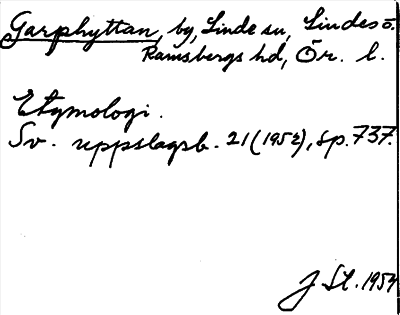 Garphyttan, by, Linde sn, Lindes ö.
Ramsbergs hd, Ör. l.
Etymologi.
Sv. uppslagsb. 21(1952), sp. 737.
J St. 1954